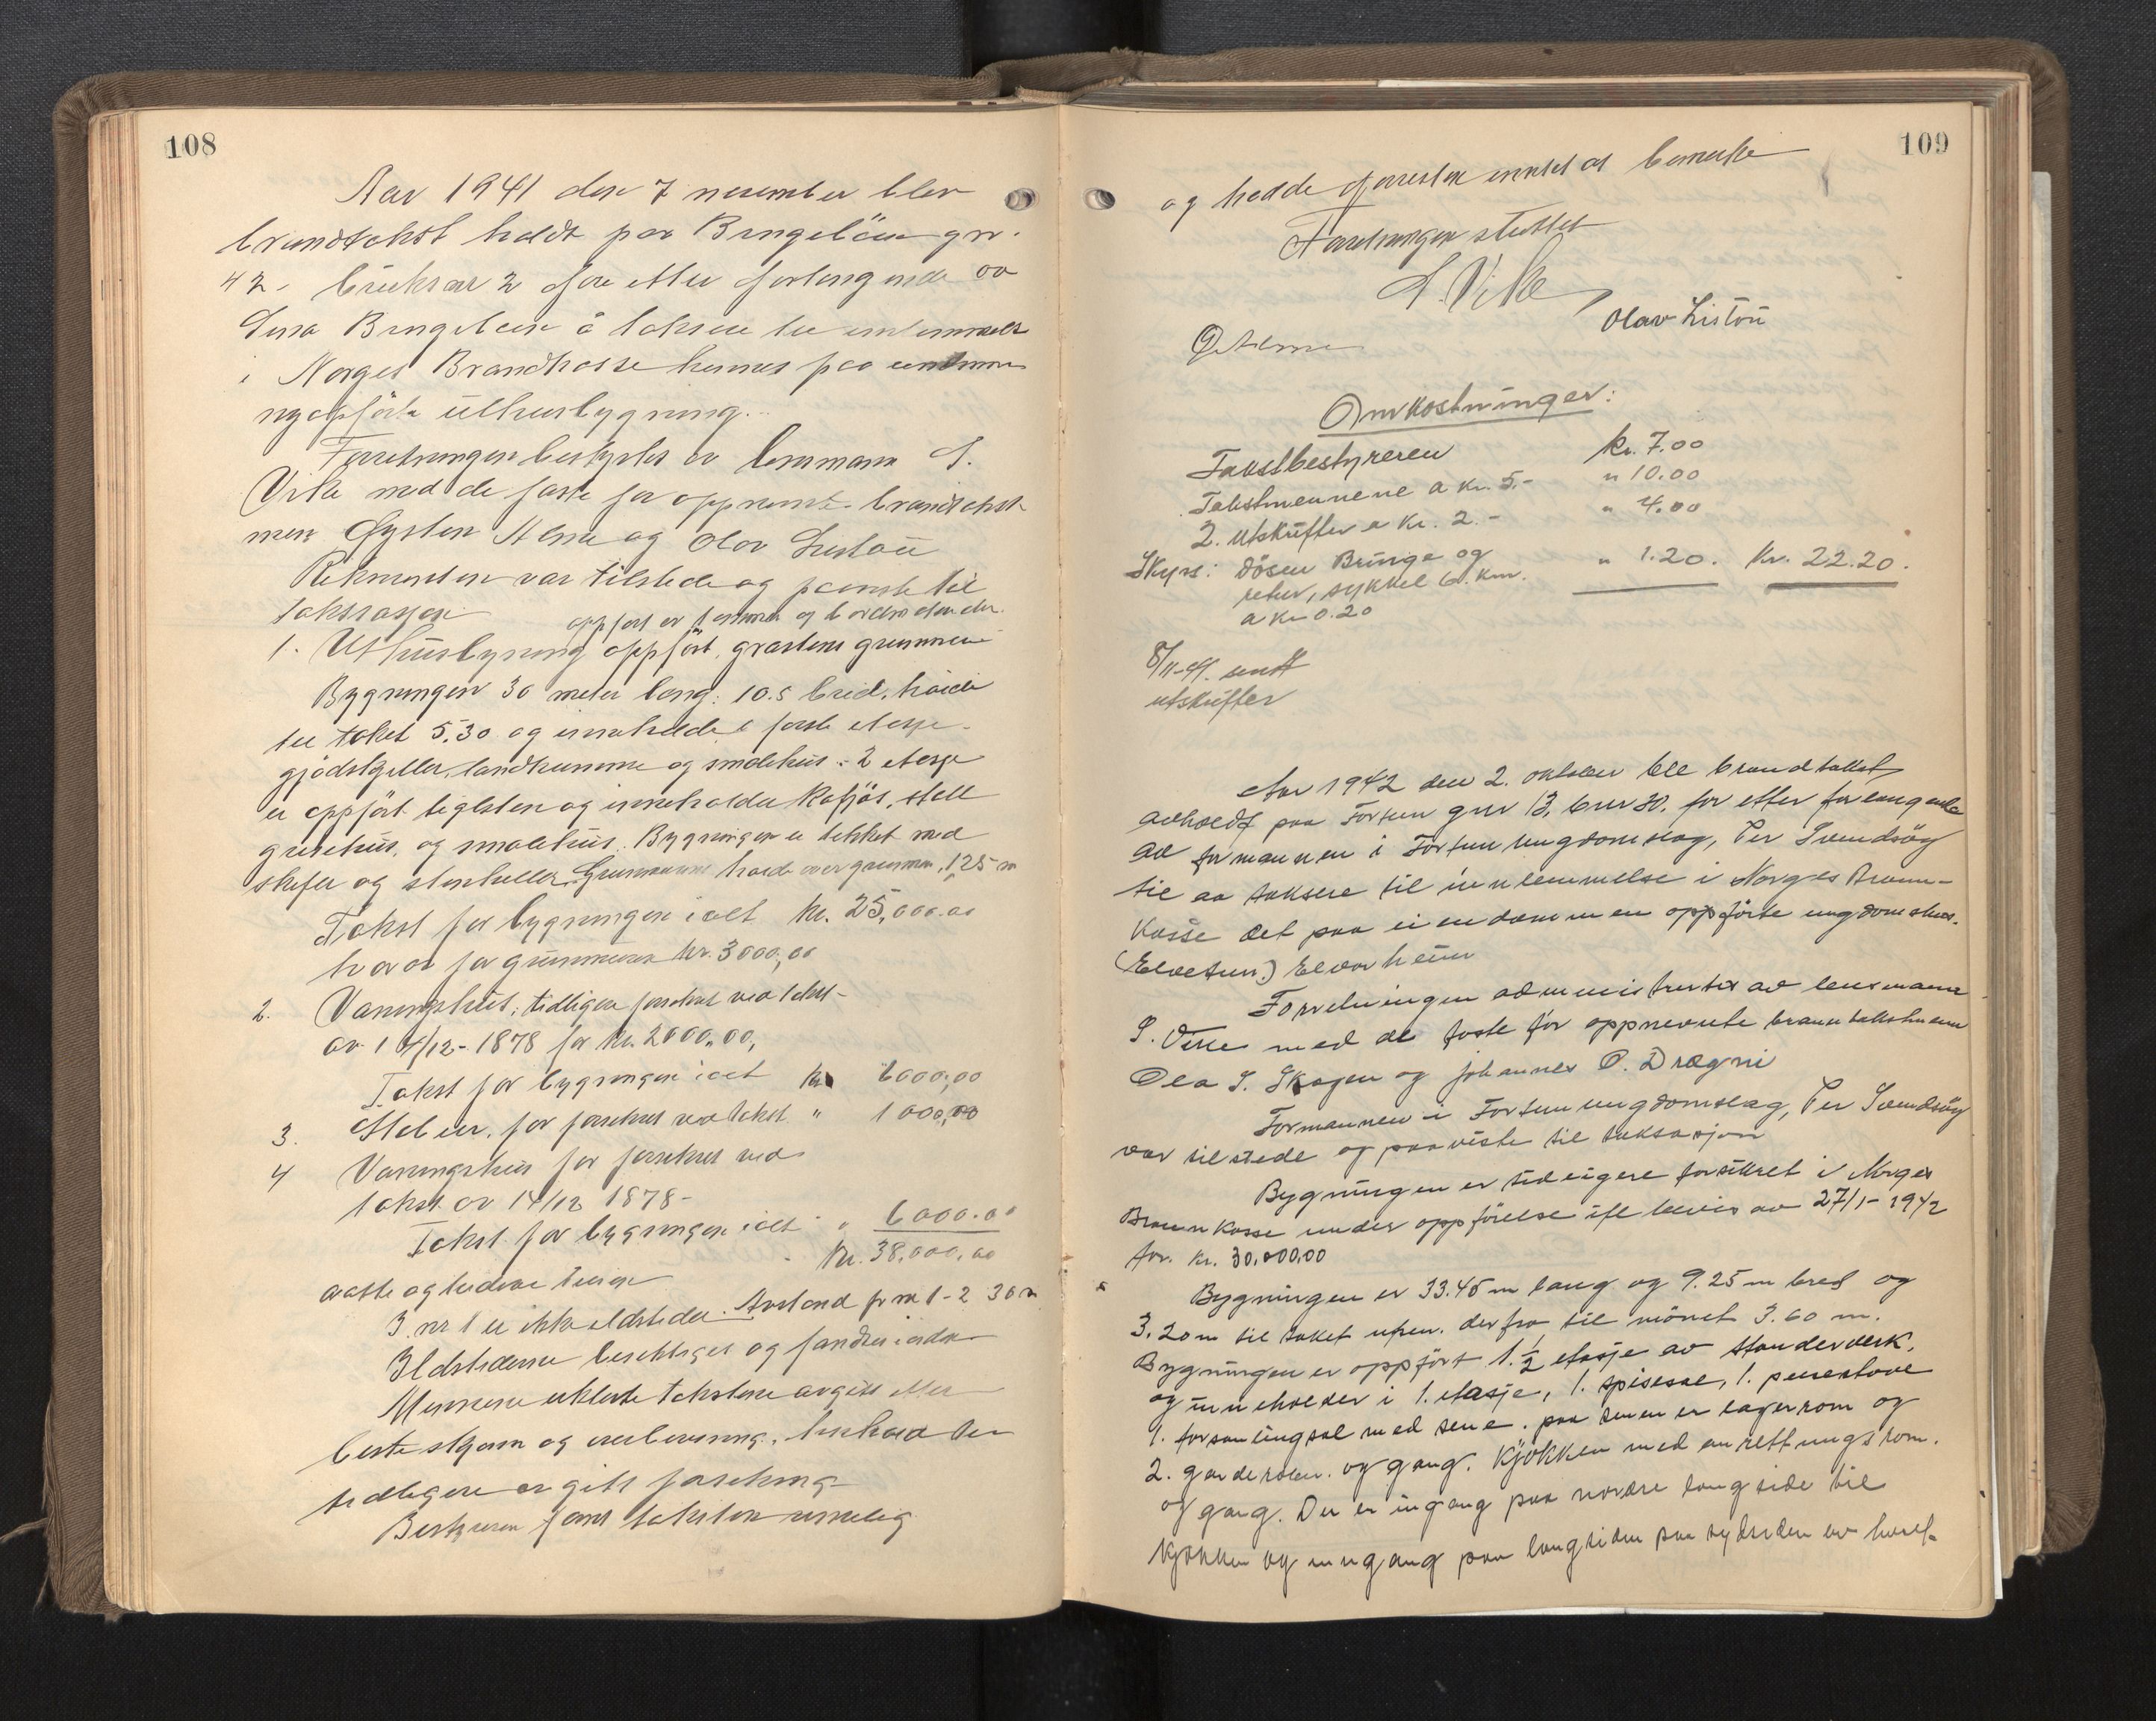 108
Aar 1941 den 7 november blev
brandtakst holdt paa Bringebøen gnr.
42. bruksnr 2 efter forlangende av
Bringebøen å taksere til innlemmelse
i Norges Brandkasse hennes paa eiendommen
nyopførte uthusbygning.
Forretningen bestyrtes av lensmann S.
Vike med de faste før oppnevnte brandtakst
menn Øysten Alme og Olav Listøu
Rekvirenten var tilstede og paaviste til
taksasjon
oppført av tømmer og bordvedkender.
1. Uthusbyning oppført, graastens grunnmur
Bygningen 30 meter lang: 10.5 breid, høide
til taket 5.30 og inneholder i første etasje
gjødselkjeller, landkumme og smalehus. 2 etasje
er oppført teglsten og inneholder kufjøs, stall
grisehus, og smalehus. Bygningen er tekket med
skifer og stenheller. Grunnmurens høide over grunnen, 1,25 m
Takst for bygningen ialt kr. 25,000.00
hvorav for grunnmuren kr. 3000,00
2. Vaaningshus, tidligere forsikret ved takst
av 14/12-1878 for kr. 2000,00,
Takst for bygningen ialt kr 6000,00
3. Stabur, før forsikret ved takst " 1000,00
4 Vaaningshus før forsikret ved
takst av 14/12 1878-
Takst for bygningen ialt " 6000.00
kr. 38,000,00
I nr 1 er ikke ildsteder. Avstand fra nr 1-2 30 m
Ildstederne besiktiges og fandtes iorden
Mennene erklærte taksterne avgitt efter
beste skjønn og overbevisning,
tidligere avgitt forsikring
Bestyreren fant taksten rimelig

109
og hadde forresten intet at bemerke
Forretningen sluttet
S. Vike
Olav Listøu
Ø. Alme
Omkostninger:
Takstbestyreren kr. 7.00
Takstmennene a kr. 5.- " 10.00
2. utskrifter a kr. 2.- " 4.00
Skyss: Døsen Bringe og " 1.20. Kr. 22.20.
retur, sykkel 6. km.
a kr 0.20
8/11-41. sendt
utskrifter
Aar 1942 den 2. oktober ble brandtakst
avholdt paa Fortun gnr 13, bnr 30. for etter forlangende
av formannen i Fortun ungdomslag, Per Svendsøy
til aa taksere til innlemmelse i Norges Brann-
kasse det paa eiendommen oppførte ungdomshus.
(Elvetun.) Elvarheim
Forretningen administrertes av lensmann
S. Vike med de faste før oppnevnte branntakstmenn
Ola S. Skagen og Johannes O. Drægni
Formannen i Fortun ungdomslag, Per Svendsøy
var tilstede og paaviste til taksasjon
Bygningen er tidligere forsikret i Norges
Brannkasse under oppførelse ifl bevis av 27/1-1942
for. kr. 30.000.00
Bygningen er 33.45 m lang og 9.25 m bred og
3.20 m til taket ufsen. derfra til mønet 3.60 m.
Bygningen er oppført 1. 1/2 etasje av standerverk,
og inneholder i 1. etasje, 1. spisesal, 1. peisestove
1. forsamlingsal med sene. paa senen er lagerrom og
2. garderober. og gang. Kjøkken med anrettningsrom.
og gang. Der er ingang paa nordre langside til
kjøkken og inngang paa langsiden paa sydsiden av huset.